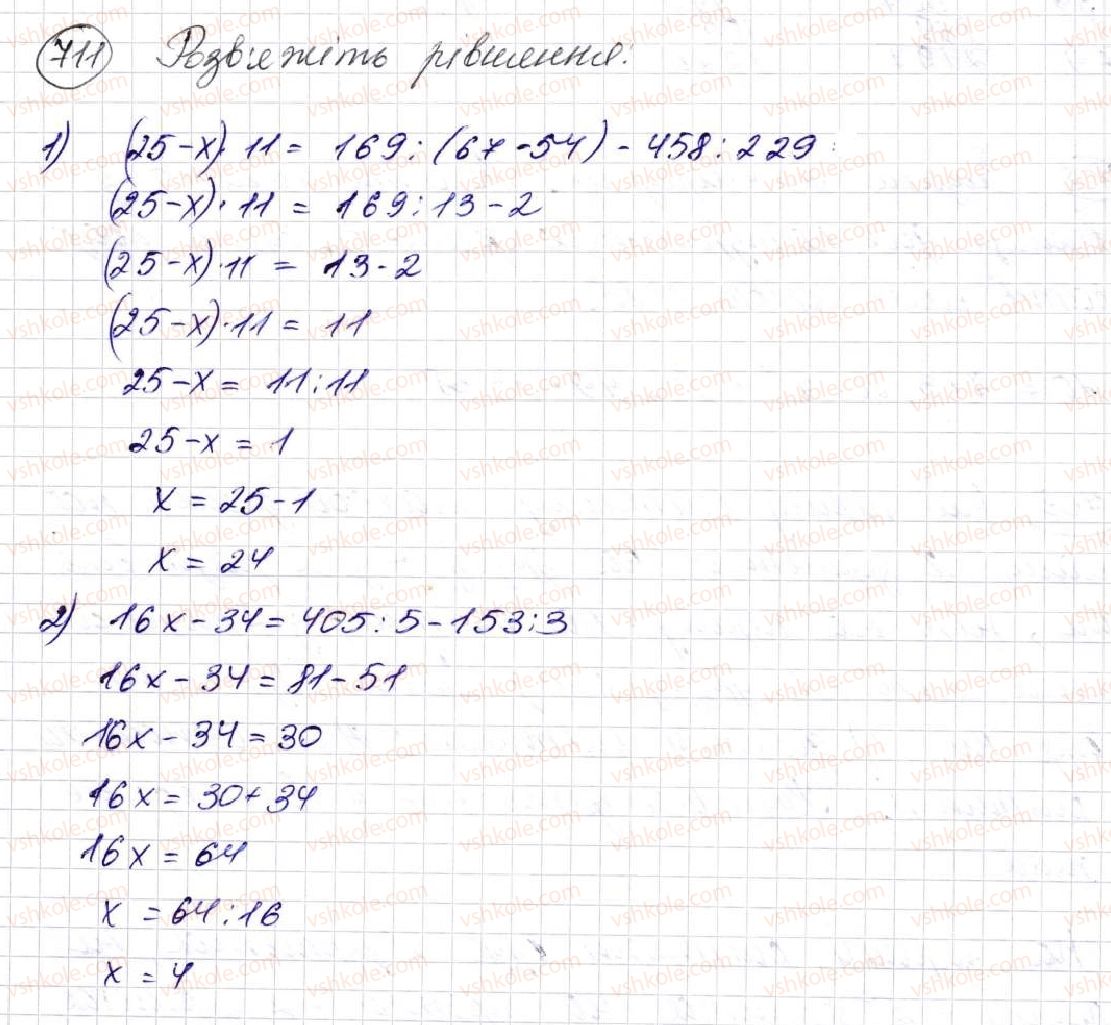 711 Розв'яжіть рівняння:
1) (25-x)·11 = 169:(67-54)-458:229
(25-x)·11 = 169:13-2
(25-x)·11 = 13-2
(25-x)·11 = 11
25-x = 11:11
25-x = 1
x = 25-1
x = 24
2) 16x-34=405:5-153:3
16x-34=81-51
16x-34=30
16x=30+34
16x=64
x=64:16
x=4
vshkole.com